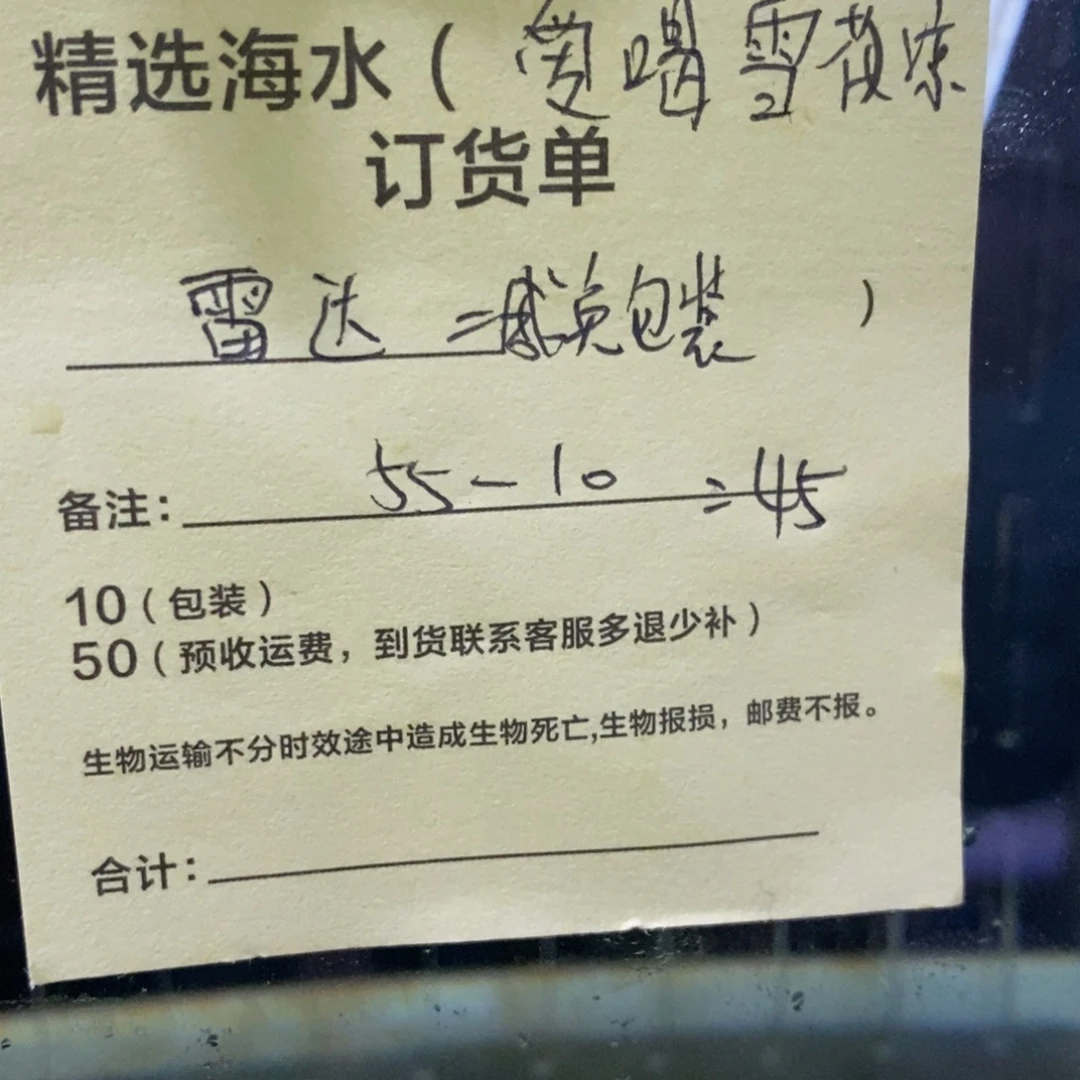 精选海水（爱喝雪花冻
订货单
雷达 =减免包装 ）
备注：55-10=45
10（包装）
50（预收运费，到货联系客服多退少补）
生物运输不分时效途中造成生物死亡,生物报损，邮费不报。
合计：